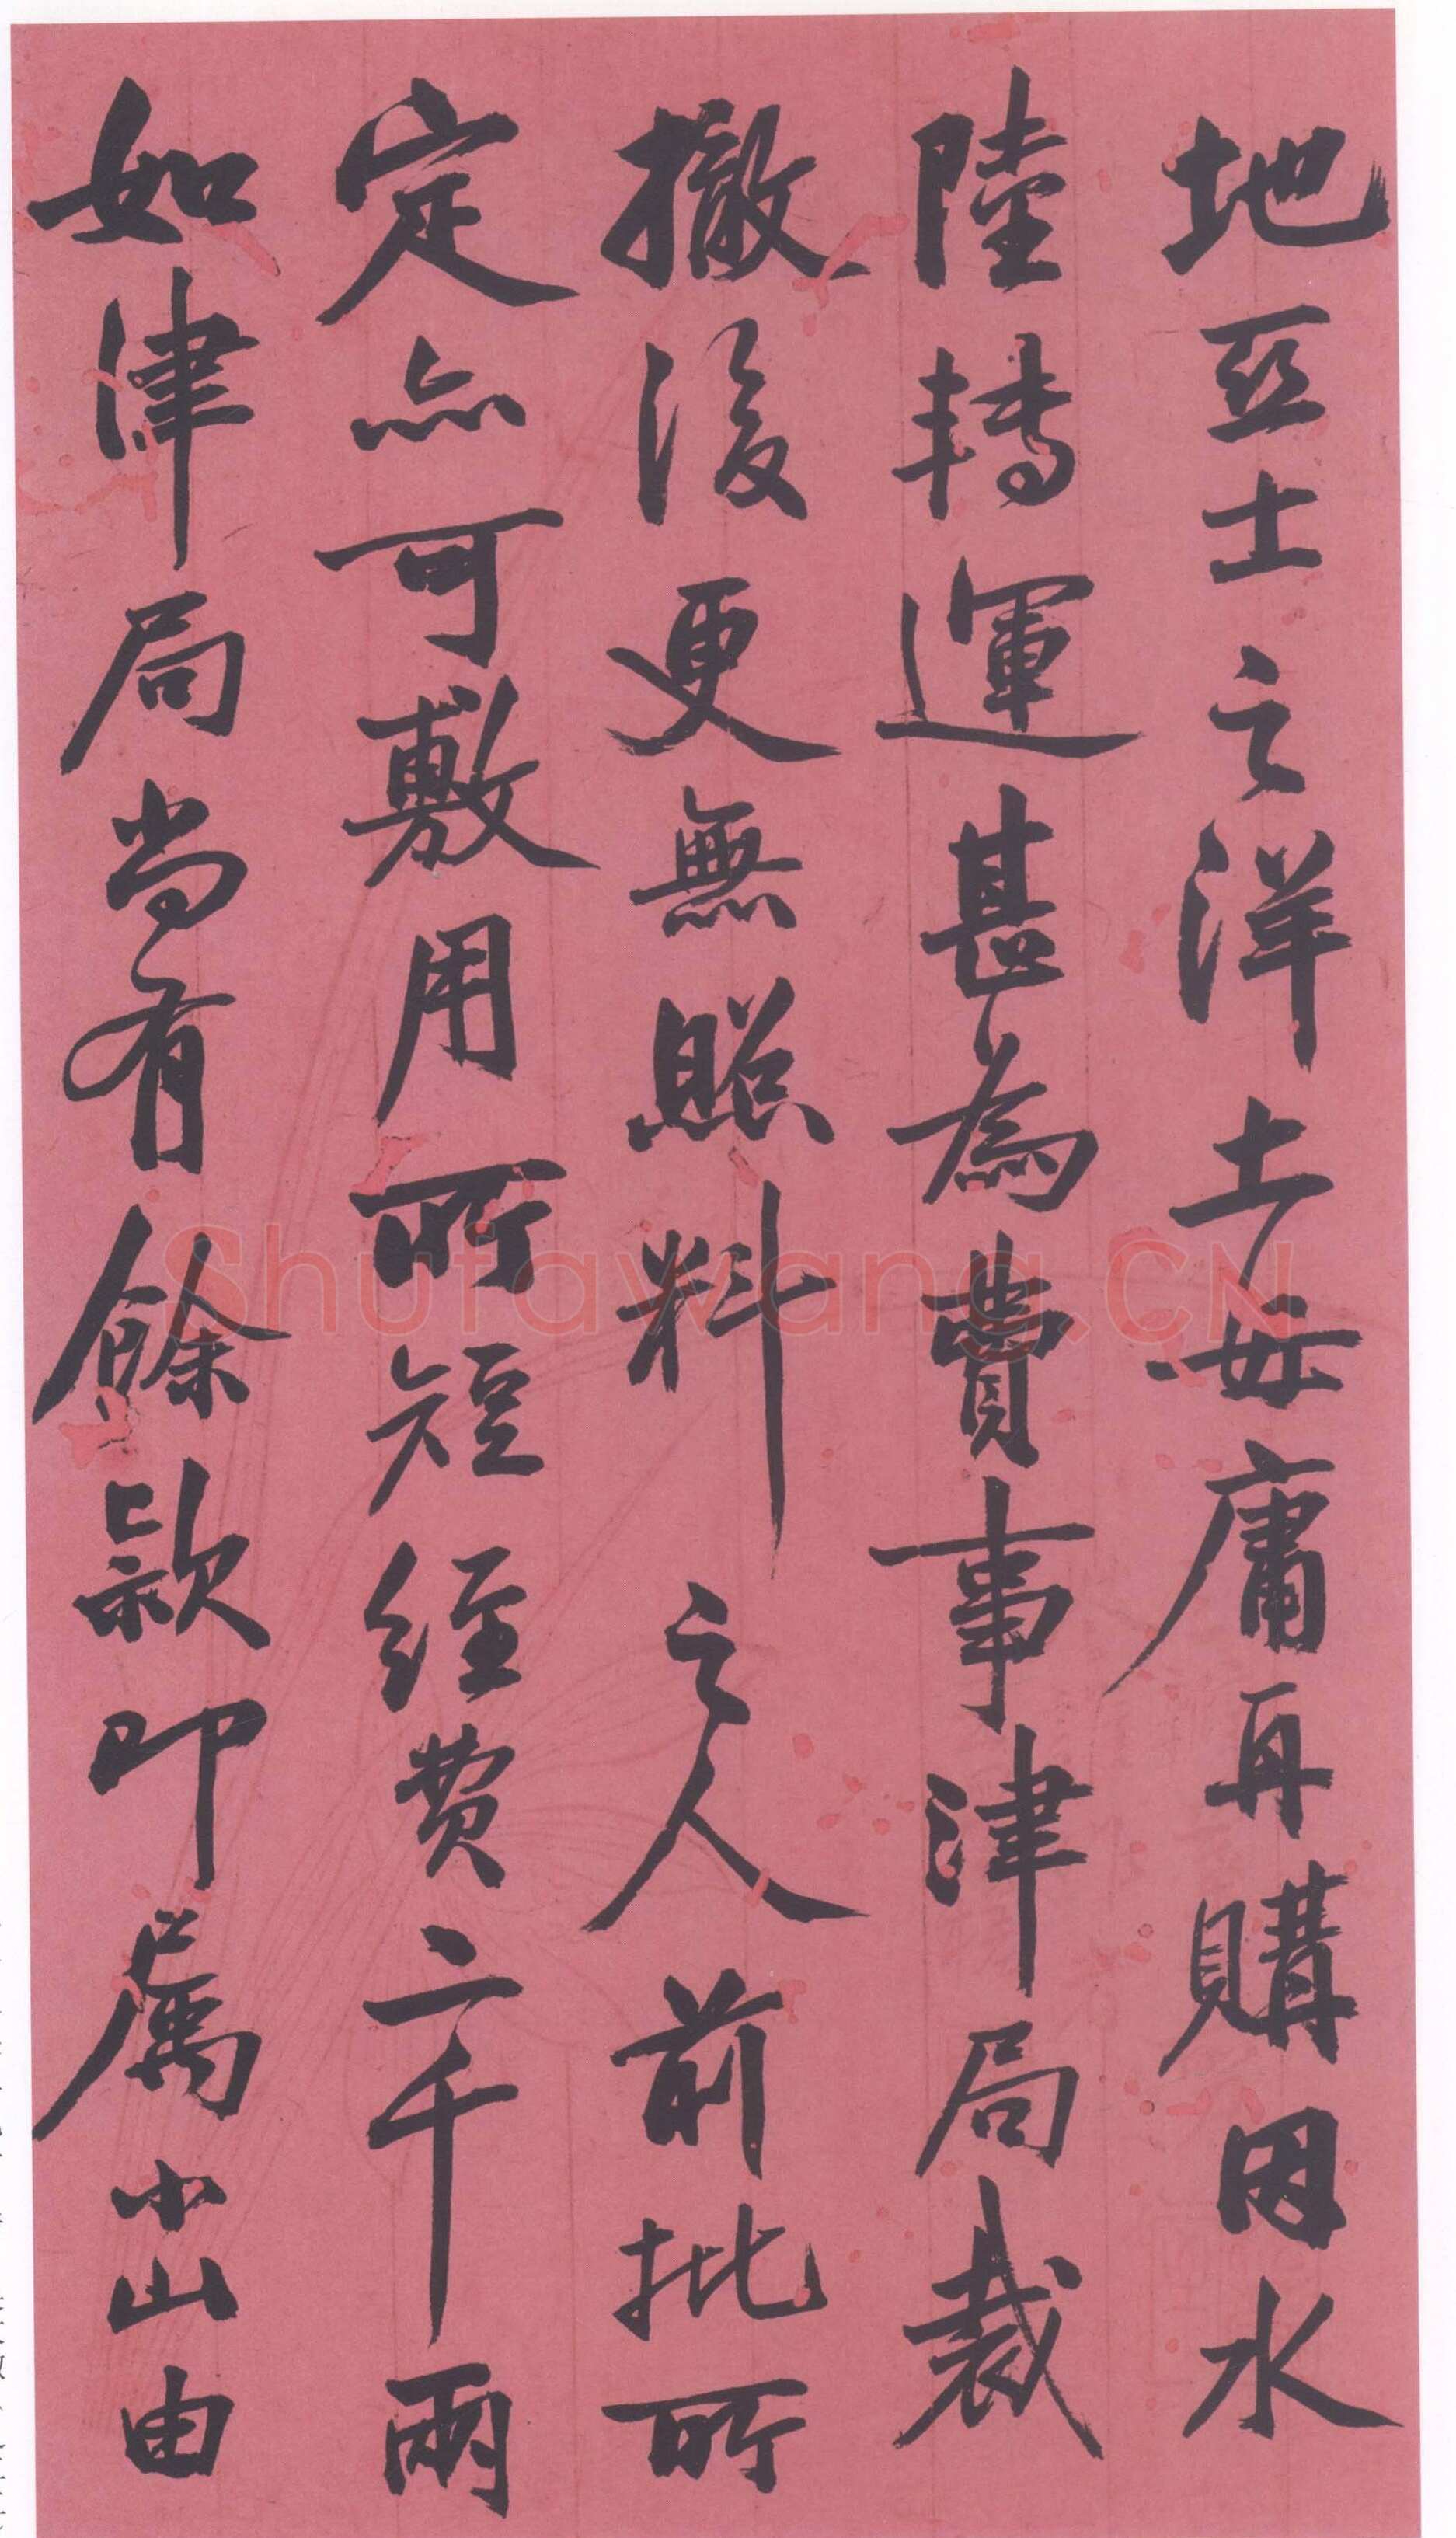 地亞士之洋土毋庸再購因水
陸轉運甚為費事津局裁
撤後更無照料之人前批所
定亦可敷用所短經費二千兩
如津局尚有餘款即屬小山由
Shufawang.CN